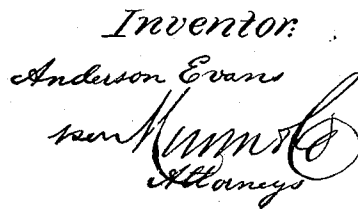 Inventor:
Anderson Evans
per Munn & Co
Attorneys